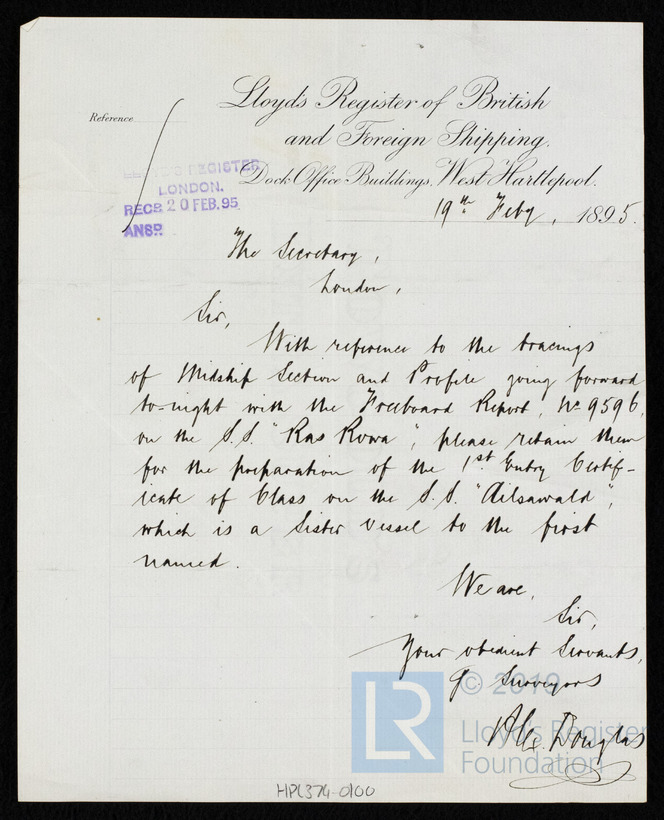 Lloyd's Register of British
and Foreign Shipping.
Reference
Dock Office Buildings, West Hartlepool.
LLOYD'S REGISTER
LONDON.
RECD 20 FEB. 95
ANSD
19th Feby, 1895.
The Secretary,
London,
Sir,
With reference to the tracings
of Midship Section and Profile going forward
to-night with the Freeboard Report, No 9596,
on the S.S. "Ras Rowa", please retain them
for the preparation of the 1st Entry Certif-
icate of Class on the S.S. "Ailsawald",
which is a Sister Vessel to the first
named.
We are,
Sir,
Your obedient Servants,
Surveyors
Alex. Douglas
LR © 2019
Lloyd's Register
Foundation
HPL374-0100